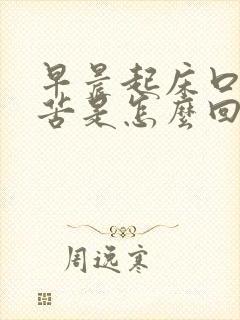 早晨起床口
苦是怎麽回
周逸寒